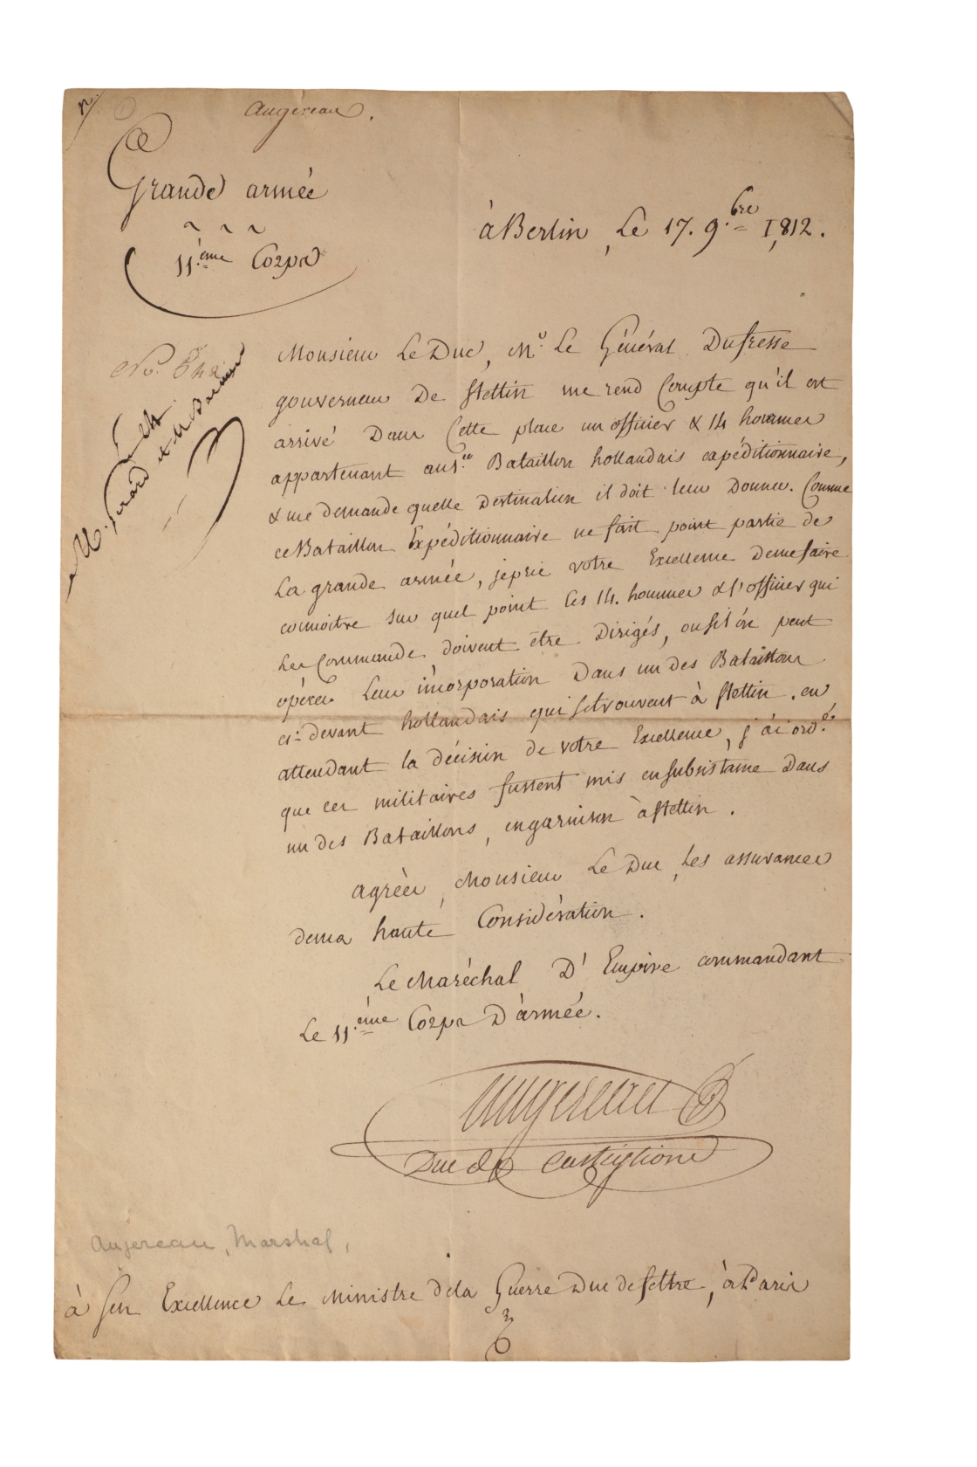 Augereau.
Grande armée
11.ème Corps
à Berlin, Le 17. 9.bre 1812.
Monsieur Le Duc, Mr. Le Général Dufresse
gouverneur De Stettin me rend Compte qu'il est
arrivé Dans Cette place un officier & 14 hommes
appartenant au 1.er Bataillon hollandais expéditionnaire,
& me demande quelle Destination il doit leur Donner. Comme
ce Bataillon Expéditionnaire ne fait point partie de
La grande armée, je prie votre Excellence De me faire
connoitre sur quel point Ces 14. hommes & l'officier qui
Les Commande doivent être Dirigés, ou s'il peut
opérer Leur incorporation Dans un des Bataillons
ci-devant hollandais qui se trouvent à Stettin. en
attendant la décision de votre Excellence, j'ai ord.é
que ces militaires fussent mis en subsistance Dans
un des Bataillons, en garnison à Stettin.
agréez, Monsieur Le Duc, Les assurances
de ma haute Considération.
Le Maréchal D'Empire commandant
Le 11.ème Corps D'armée.
Augereau
Duc de Castiglione
Augereau, Marshal,
à Son Excellence Le Ministre de la Guerre Duc de feltre, à Paris